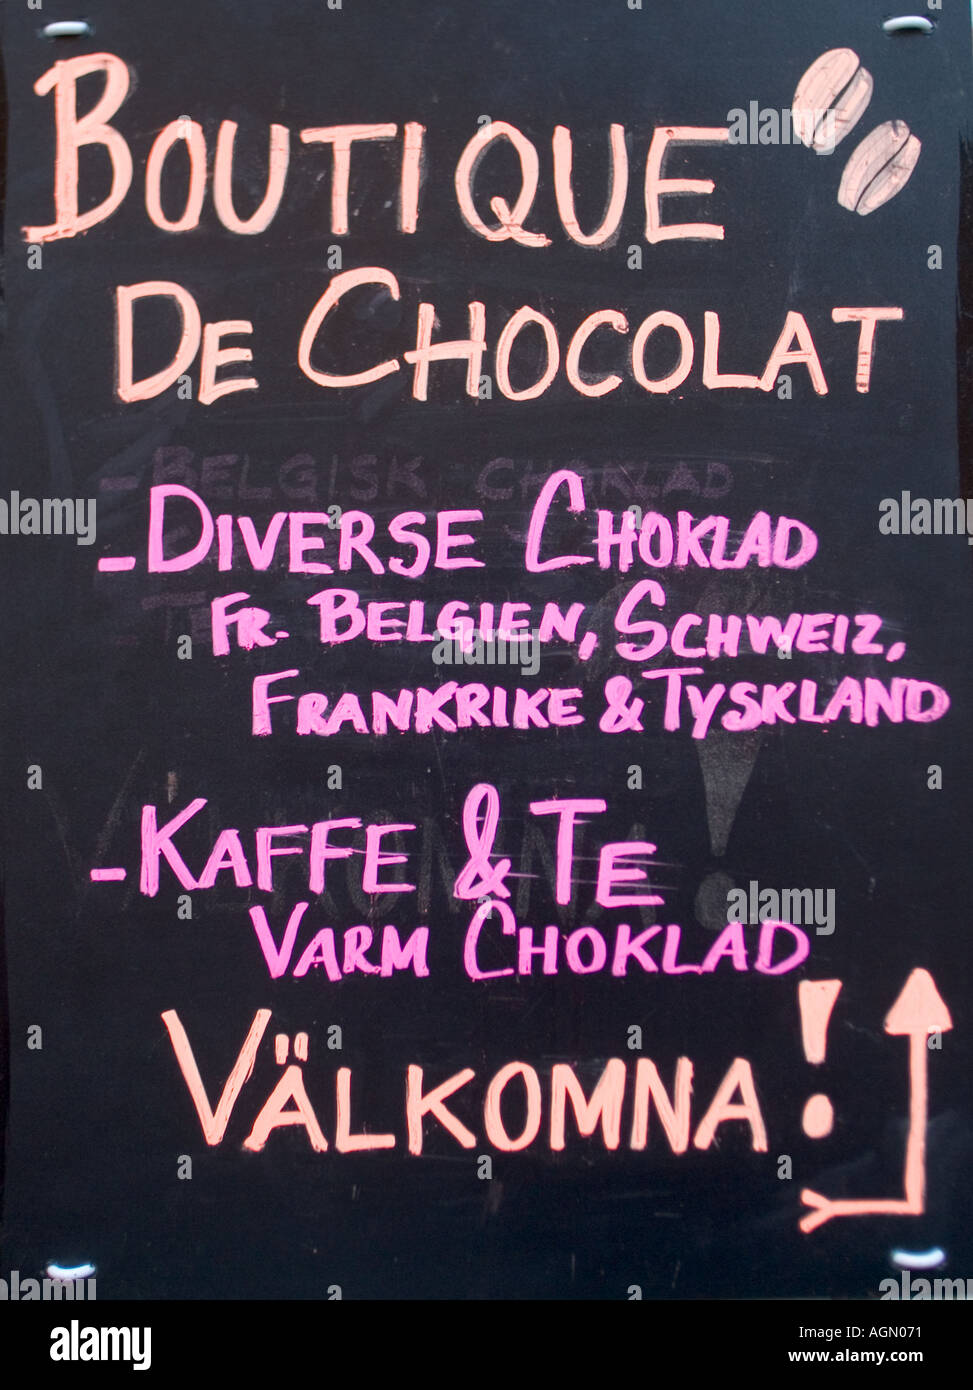 BOUTIQUE
DE CHOCOLAT
- BELGISK CHOKLAD
- DIVERSE CHOKLAD
FR. BELGIEN, SCHWEIZ,
FRANKRIKE & TYSKLAND
- KAFFE & TE
VARM CHOKLAD
VÄLKOMNA!
alamy
Image ID: AGN071
www.alamy.com